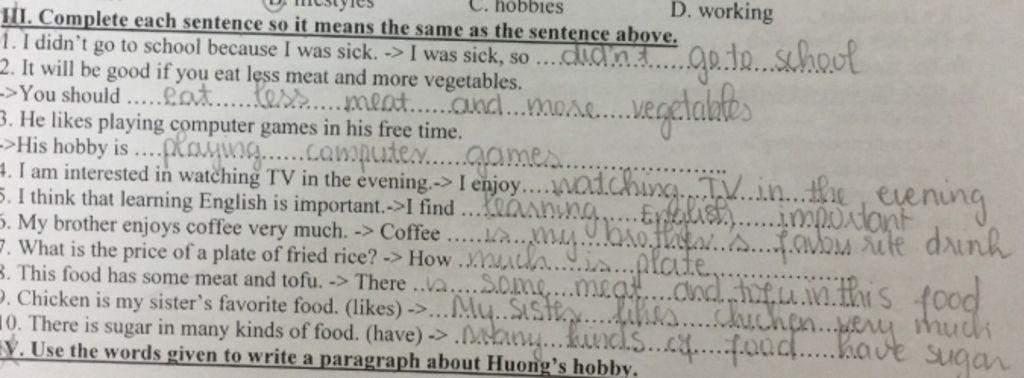 D. lifestyles C. hobbies D. working
III. Complete each sentence so it means the same as the sentence above.
1. I didn't go to school because I was sick. -> I was sick, so ....didn't.....go.to...school
2. It will be good if you eat less meat and more vegetables.
->You should .....eat......less.....meat.....and...more.....vegetables
3. He likes playing computer games in his free time.
->His hobby is ....playing......computer.....games.........................
4. I am interested in watching TV in the evening.-> I enjoy....watching...TV...in...the evening
5. I think that learning English is important.->I find ....learning....English......important
6. My brother enjoys coffee very much. -> Coffee ......is...my...brother's...favourite drink
7. What is the price of a plate of fried rice? -> How ..much....is....plate..................
8. This food has some meat and tofu. -> There ..is.....some....meat....and..tofu.in.this food
9. Chicken is my sister's favorite food. (likes) ->...My..sister....likes....chicken...very much
10. There is sugar in many kinds of food. (have) -> .Many....kinds...of....food.....have sugar
V. Use the words given to write a paragraph about Huong's hobby.